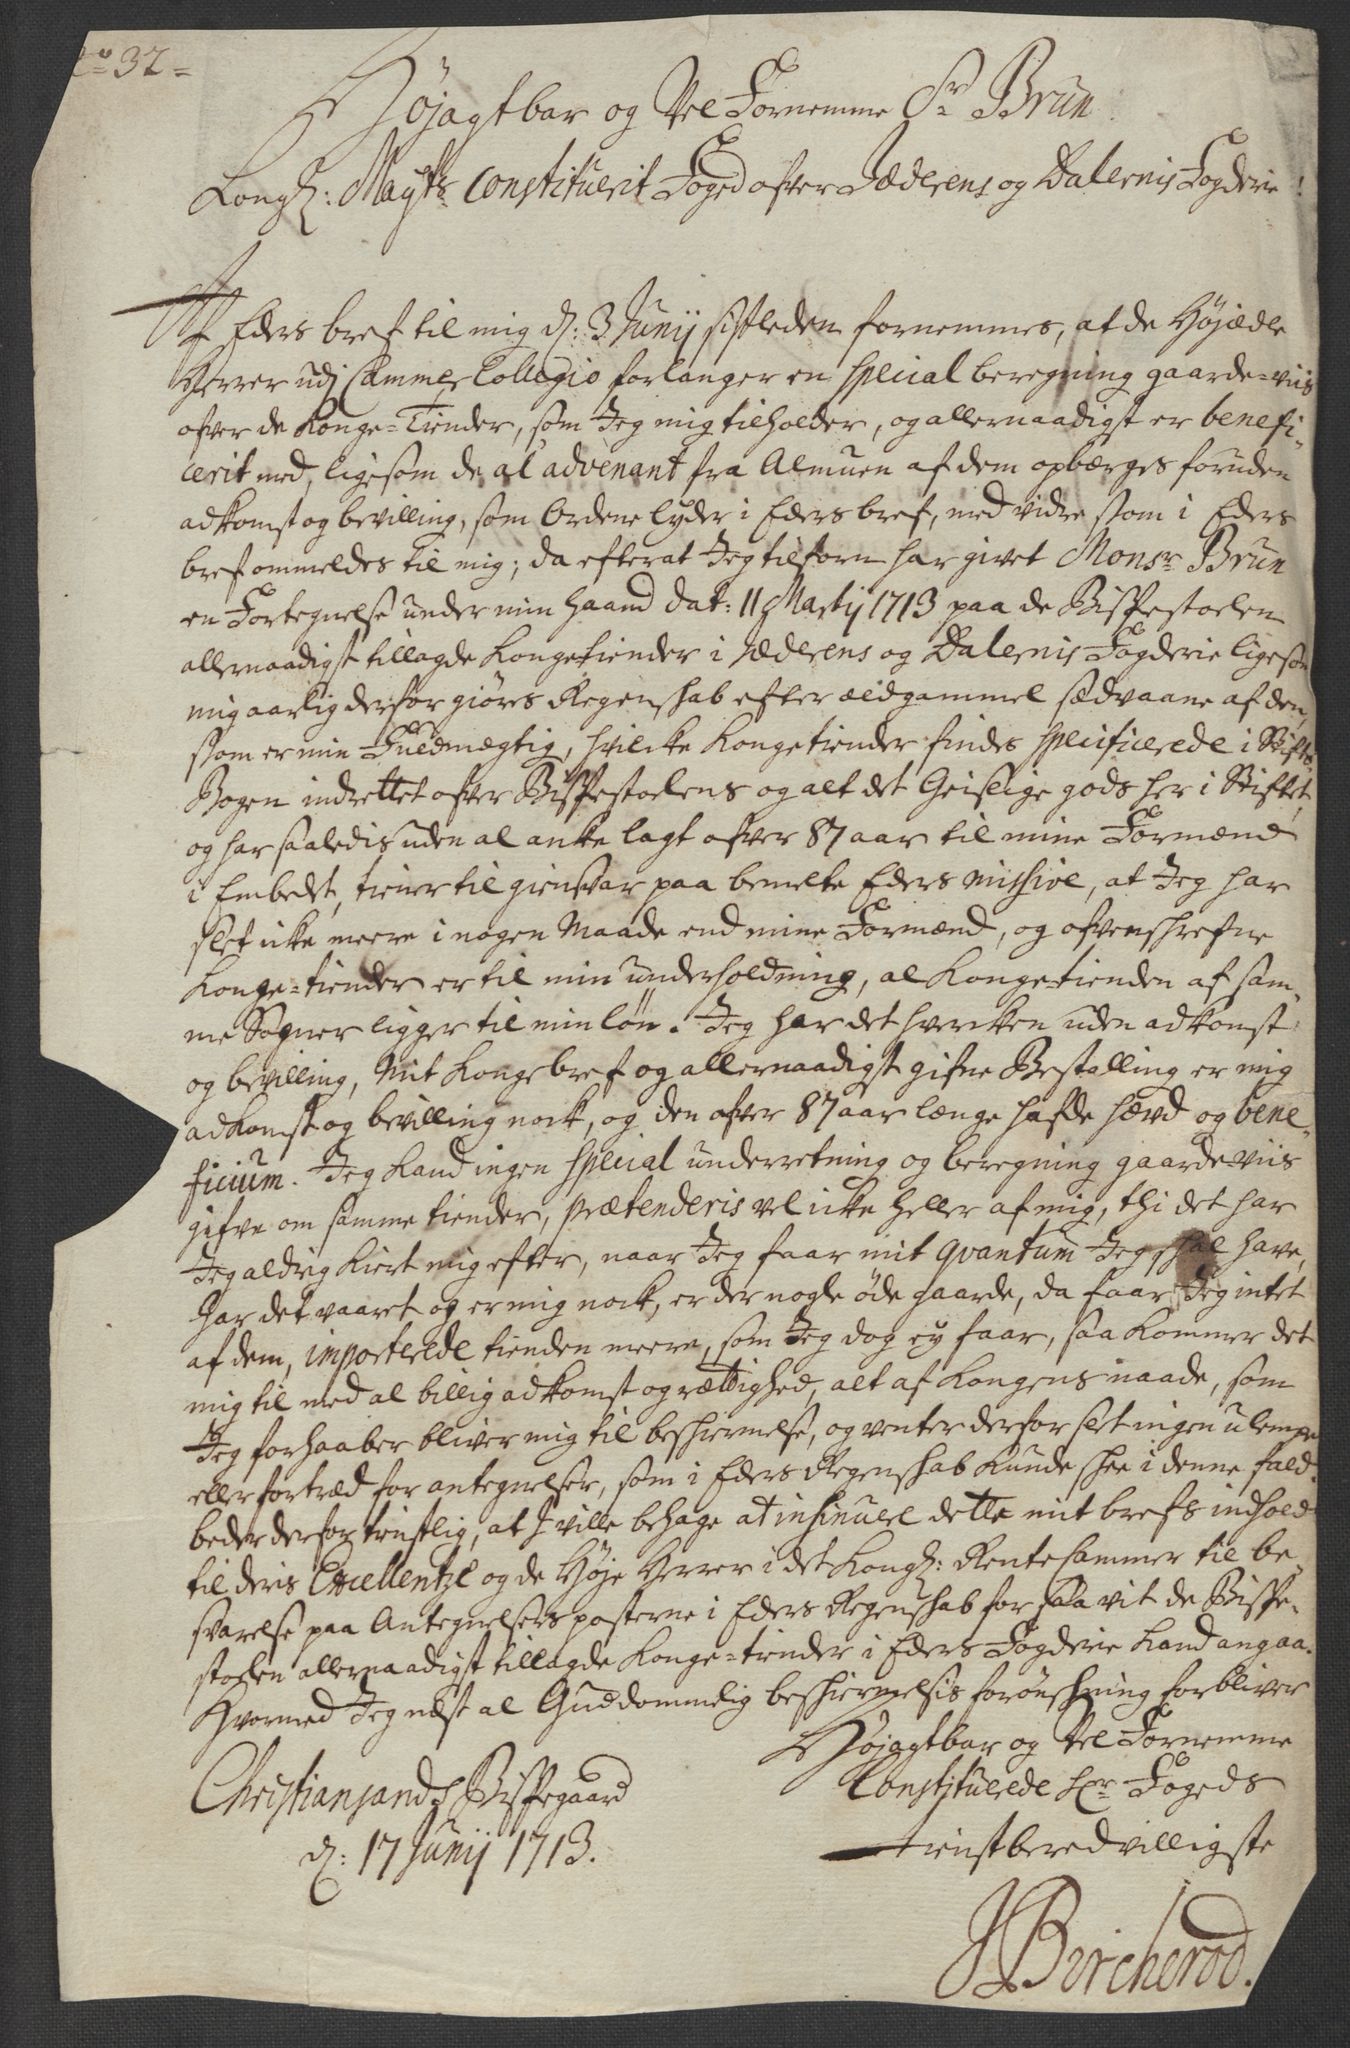 No 32=
Højagtbar og Vel Fornemme Sr Brun
Kongl: Mayts Constituerit Foged ofver Jæderens og Dalernis Fogderie!
Af Eders bref til mig d: 3 Junij sistleden fornemmes, at de Højædle
Herrer udj Cammer Collegio forlanger en special beregning gaarde=viis
ofver de Konge=Tiender, som Jeg mig tilholder, og allernaadigst er benefi-
cerit med, ligesom de al advenant fra Almuen af dem opbærges foruden
adkomst og bevilling, som Ordene lyder i Eders bref, med vidre som i Eders
bref ommeldes til mig; da efterat Jeg tilforn har givet Monsr Brun
en Fortegnelse under min haand dat: 11 Martij 1713 paa de Bispestoelen
allernaadigst tillagde Kongetiender i Jæderens og Dalernis Fogderie ligesom
mig aarlig derfor giøres Regenskab efter ældgammel sædvaane af den,
som er min Fuldmægtig, hvilcke Kongetiender findes specificerede i Stifts
Bogen indrettet ofver Bispestoelens og alt det Geislige gods her i Stiftet,
og har saaledis uden al anke lagt ofver 87 aar til mine Formænd
i Embedet, tiener til giensvar paa bemelte Eders missive, at Jeg har
slet icke meere i nogen Maade end mine Formænd, og ofvenskrefne
Konge=tiender er til min underholdning, al Kongetienden af sam-
me Sogner ligger til min løn. Jeg har det hvercken uden adkomst
og bevilling, Mit Kongebref og allernaadigst gifne Bestalling er mig
adkomst og bevilling nock, og den ofver 87 aar længe hafde hævd og bene-
ficium. Jeg kand ingen special underretning og beregning gaarde=viis
gifve om samme tiender, prætenderis vel icke heller af mig, thi det har
Jeg aldrig kiert mig efter, naar Jeg faar mit qvantum Jeg skal have,
har det vaaret og er mig nock, er der nogle øde gaarde, da faar Jeg intet
af dem, importerede tienden meere, som Jeg dog ey faar, saa kommer det
mig til med al billig adkomst og rættighed, alt af Kongens naade, som
Jeg forhaaber bliver mig til beskiermelse, og venter derfor slet ingen ulempe
eller fortræd for antegnelser, som i Eders Regenskab kunde skee i denne fald.
beder derfor tienstlig, at J ville behage at insinuere dette mit brefs indhold
til deris Excellentze og de Høje Herrer i det Kongl: Rente Cammer til be-
svarelse paa Antegnelsers posterne i Eders Regenskab for saa vit de Bispe-
stoelen allernaadigst tillagde Konge=tiender i Eders Fogderie kand angaa.
Hvormed Jeg næst al Guddommelig beskiermelsis forønskning forbliver
Højagtbar og Vel Fornemme
Constituerede Hr Fogeds
Christiansands Bispegaard
d: 17 Junij 1713.
tienstberedvilligste
JBircherod.